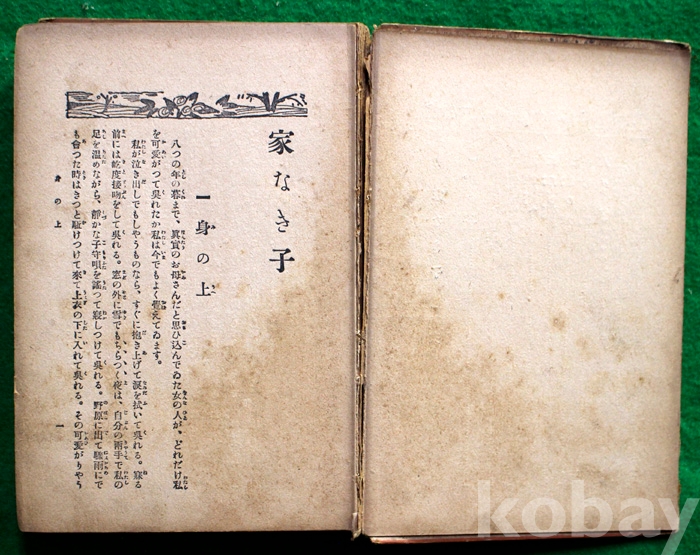 家なき子
一 身の上
八つの年の暮まで、眞實のお母さんだと思ひ込んでゐた女の人が、どれだけ私
を可愛がつて吳れたか私は今でもよく覺えてゐます。
私が泣き出しでもしやうものなら、すぐに抱き上げて淚を拭いて吳れる。寢る
前には屹度接吻をして吳れる。窓の外に雪でもちらつく夜は、自分の兩手で私の
足を溫めながら、靜かな子守唄を謠つて寢しつけて吳れる。野原に出て驟雨にで
も會つた時はきつと駈けつけて來て上衣の下に入れて吳れる。その可愛がりやう
身の上
一
kobay